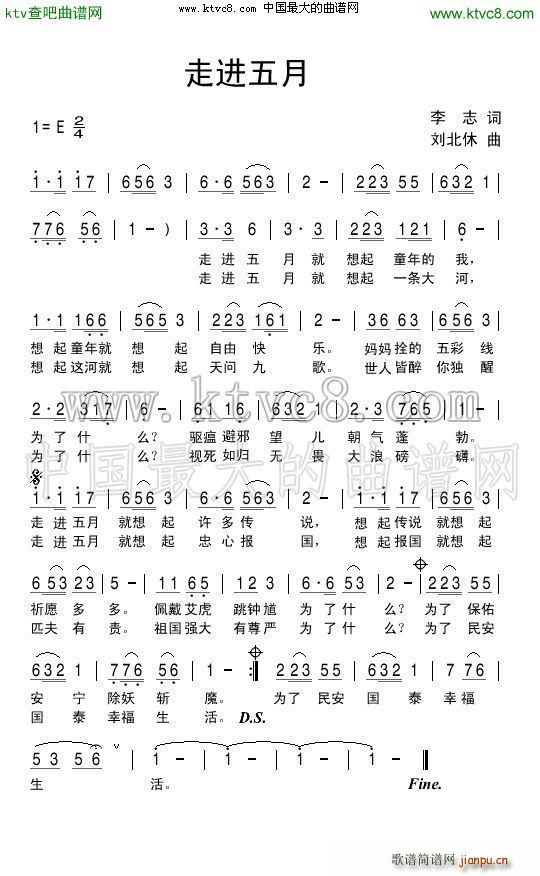 ktv查吧曲谱网
www.ktvc8.com 中国最大的曲谱网
www.ktvc8.com
走进五月
1=E 2/4
李 志 词
刘北休 曲
1·1 17 | 656 3 | 6·6 563 | 2 - | 223 55 | 632 1 |
776 56 | 1 - ) | 3·3 6 | 3·3 | 223 121 | 6 - |
走 进 五 月 就 想 起 童年的 我,
走 进 五 月 就 想 起 一条大 河,
1·1 166 | 565 3 | 223 161 | 2 - | 36 63 | 656 3 |
想 起 童年就 想 起 自由 快 乐。 妈妈 拴的 五彩 线
想 起 这河就 想 起 天问 九 歌。 世人 皆醉 你独 醒
2·2 317 | 6 - | 61 16 | 632 3 | 2·3 765 | 1 - |
为 了 什 么? 驱瘟 避邪 望 儿 朝 气 蓬 勃。
为 了 什 么? 视死 如归 无 畏 大 浪 磅 礴。
www.ktvc8.com
中国最大的曲谱网
1·1 17 | 656 3 | 6·6 563 | 2 - | 1·1 17 | 656 3 |
走 进 五月 就想 起 许 多 传 说, 想 起 传说 就想 起
走 进 五月 就想 起 忠 心 报 国, 想 起 报国 就想 起
6 53 23 | 5 - | 11 65 | 12 3 | 6·6 53 | 2 - | 223 55 |
祈愿 多 多。 佩戴 艾虎 跳钟 馗 为 了 什 么? 为了 保佑
匹夫 有 责。 祖国 强大 有尊 严 为 了 什 么? 为了 民安
632 1 | 776 56 | 1 - :| 223 55 | 632 1 | 7 76 |
安 宁 除妖 斩 魔。 为了 民安 国 泰 幸福
国 泰 幸福 生 活。 D.S.
53 56 | 1 - | 1 - | 1 - | 1 - ‖
生 活。 Fine.
歌谱简谱网
jianpu.cn